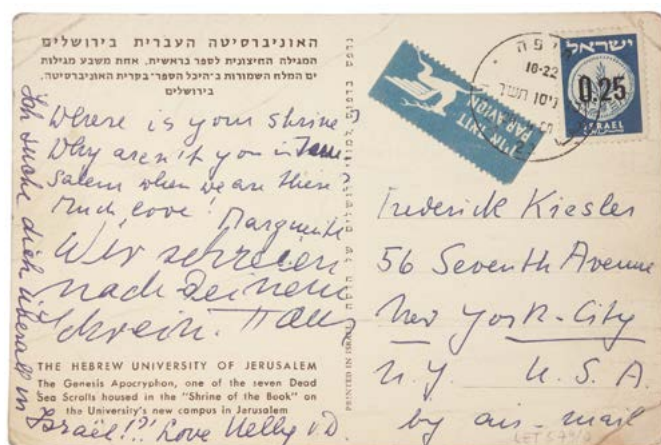 האוניברסיטה העברית בירושלים
המגילה החיצונית לספר בראשית, אחת משבע מגילות
ים המלח השמורות ב"היכל הספר" בקרית האוניברסיטה,
בירושלים
Where is your shrine
Why aren't you in Jeru
salem when we are there
much love!
Marguerite
Wir schreien
nach Deinem
Schrein.
THE HEBREW UNIVERSITY OF JERUSALEM
The Genesis Apocryphon, one of the seven Dead
Sea Scrolls housed in the "Shrine of the Book" on
the University's new campus in Jerusalem
Ich suche dich überall in
Israël!?! Love Nelly v.D
PRINTED IN ISRAEL
בדואר אויר
PAR AVION
חיפה
10-22
2
ישראל
0.25
ISRAEL
Frederick Kiesler
56 Seventh Avenue
New York-City
N.Y. U.S.A.
by air-mail